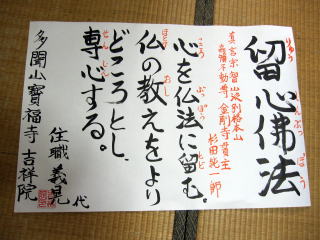 留心佛法
りゅう しん ぶっ ぽう
真言宗智山派別格本山
高幡不動尊 金剛寺貫主
杉田純一師
心を仏法に留む。
こころ ぶっぽう とど
仏の教えをより
ほとけ おし
どころとし、
専心する。
せんしん
住職 義晃 代
多聞山寳福寺 吉祥院